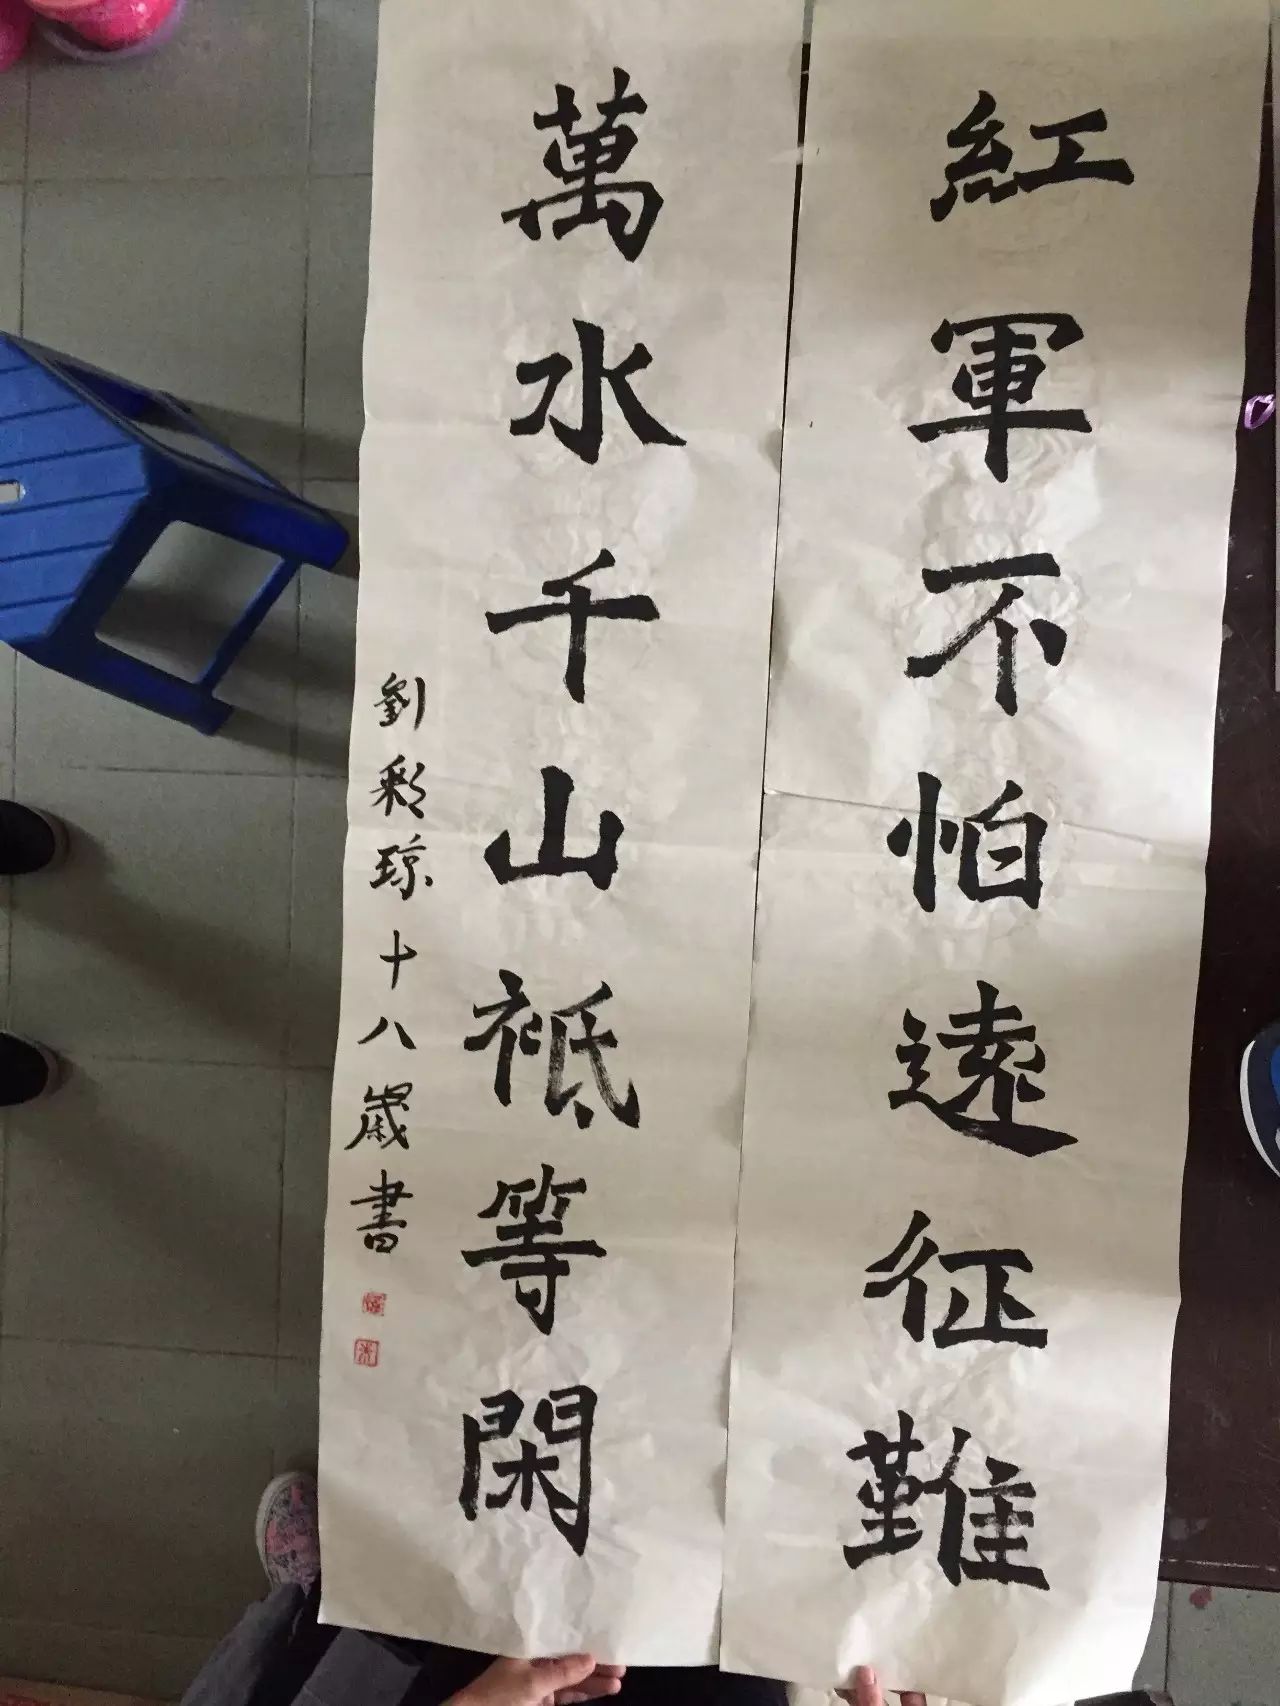 紅軍不怕遠征難
萬水千山祗等閑
劉彩琼十八歲書